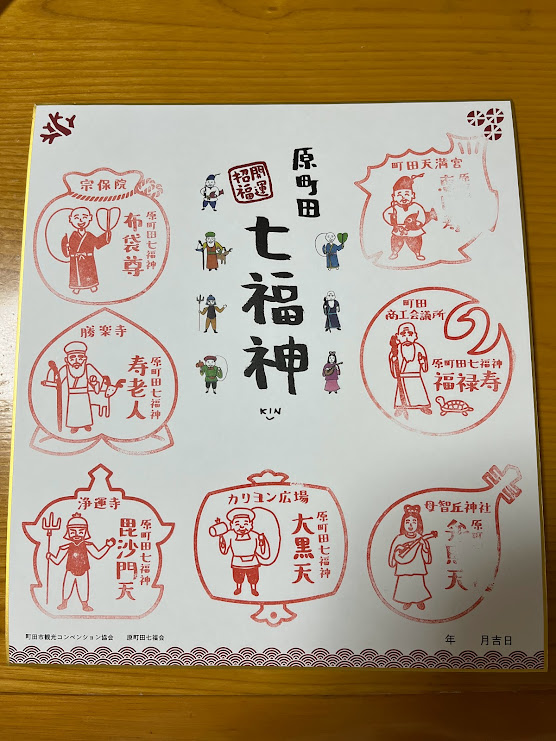 原町田
七福神
開運
招福
KIN
宗保院
原町田七福神
布袋尊
町田天満宮
勝楽寺
原町田七福神
寿老人
町田
商工会議所
原町田七福神
福禄寿
浄運寺
原町田七福神
毘沙門天
カリヨン広場
原町田七福神
大黒天
母智丘神社
町田市観光コンベンション協会 原町田七福会
年 月吉日